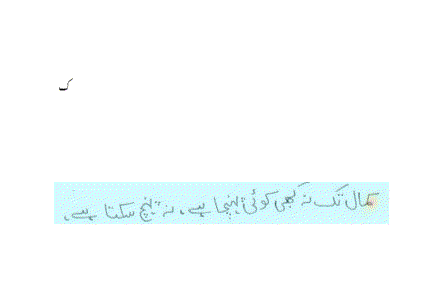 ک
کمال تک نہ کبھی کوئی پہنچا ہے، نہ پہنچ سکتا ہے۔